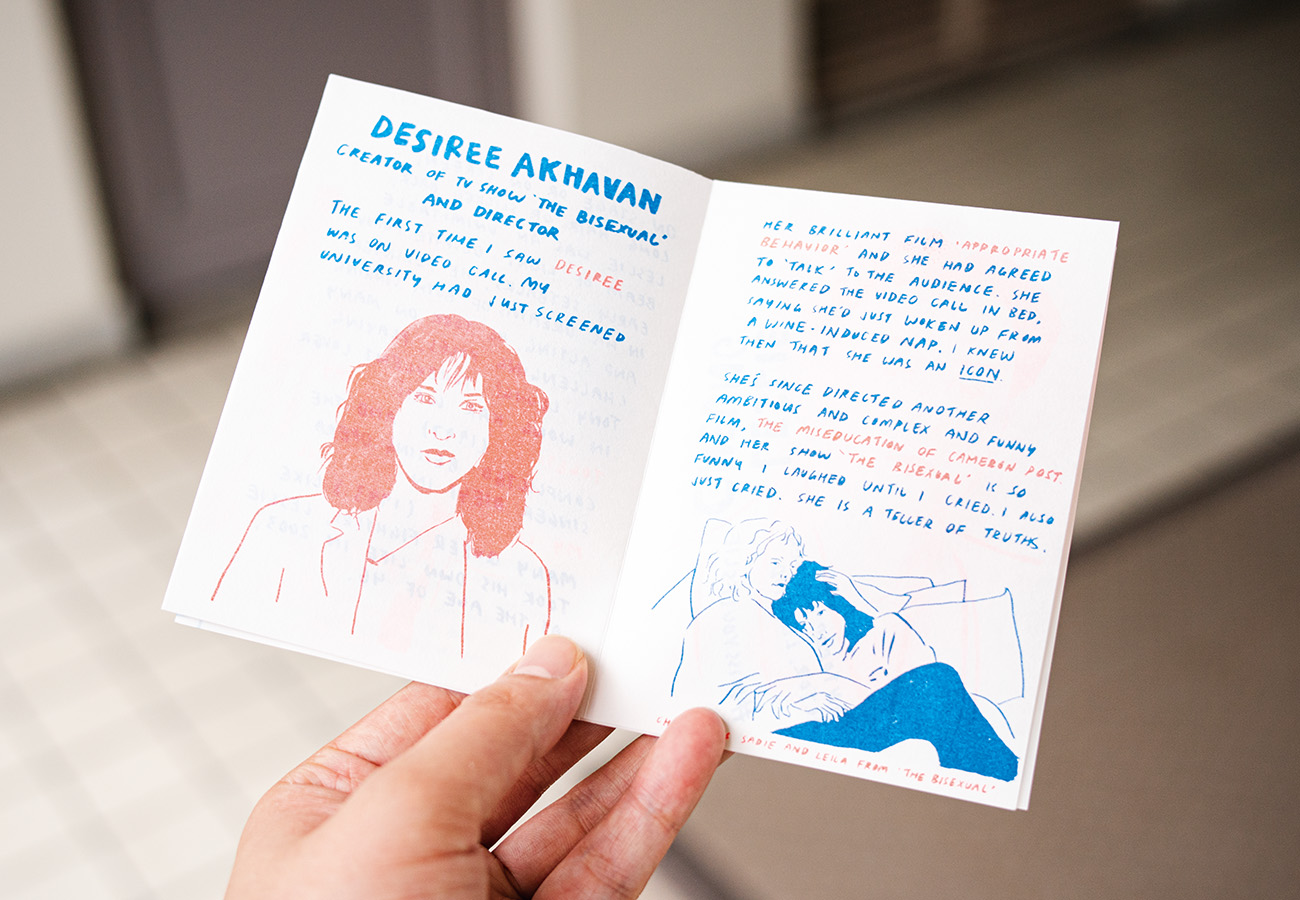 DESIREE AKHAVAN
CREATOR OF TV SHOW 'THE BISEXUAL'
AND DIRECTOR
THE FIRST TIME I SAW DESIREE
WAS ON VIDEO CALL. MY
UNIVERSITY HAD JUST SCREENED
HER BRILLIANT FILM 'APPROPRIATE
BEHAVIOR' AND SHE HAD AGREED
TO 'TALK' TO THE AUDIENCE. SHE
ANSWERED THE VIDEO CALL IN BED,
SAYING SHE'D JUST WOKEN UP FROM
A WINE-INDUCED NAP. I KNEW
THEN THAT SHE WAS AN ICON.
SHE'S SINCE DIRECTED ANOTHER
AMBITIOUS AND COMPLEX AND FUNNY
FILM, THE MISEDUCATION OF CAMERON POST.
AND HER SHOW 'THE BISEXUAL' IS SO
FUNNY I LAUGHED UNTIL I CRIED. I ALSO
JUST CRIED. SHE IS A TELLER OF TRUTHS.
SADIE AND LEILA FROM 'THE BISEXUAL'